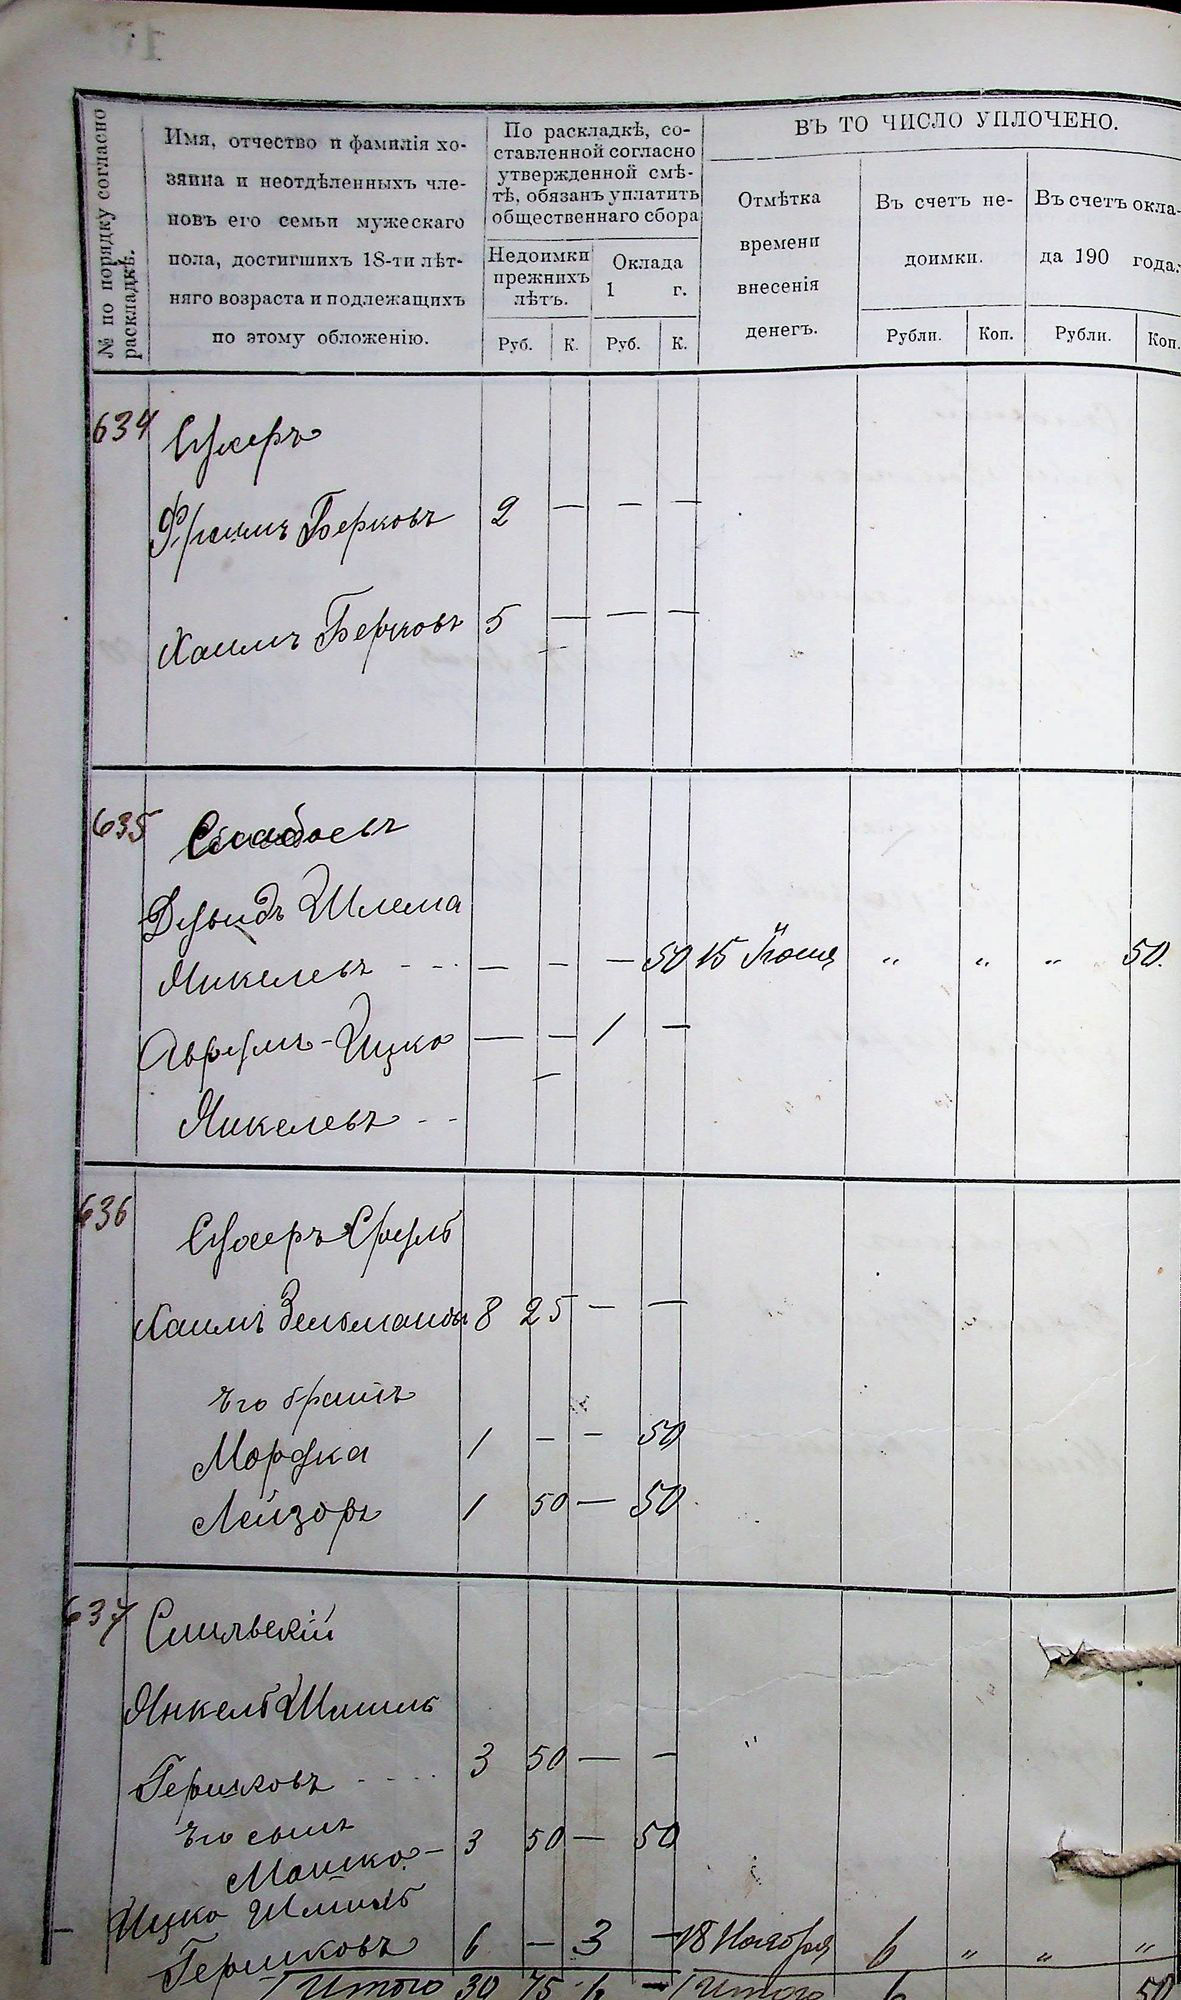 № по порядку согласно раскладкѣ.
Имя, отчество и фамилія хо-
зяина и неотдѣленныхъ чле-
новъ его семьи мужескаго
пола, достигшихъ 18-ти лѣт-
няго возраста и подлежащихъ
по этому обложенію.
По раскладкѣ, со-
ставленной согласно
утвержденной смѣ-
тѣ, обязанъ уплатить
общественнаго сбора
Недоимки
прежнихъ
лѣтъ.
Оклада
1 г.
Руб. К. Руб. К.
ВЪ ТО ЧИСЛО УПЛОЧЕНО.
Отмѣтка
времени
внесенія
денегъ.
Въ счетъ не-
доимки.
Въ счетъ окла-
да 190 года.
Рубли. Коп. Рубли. Коп.
634 Сухеръ
Фраимъ Берковъ 2 — — —
Хаимъ Берковъ 5 — — —
635
Дувидъ Шлема
Янкелевъ - - - — — — 50 15 Іюня " " " 50.
Аврумъ-Ицко — — 1 —
Янкелевъ - -
636 Сухеръ Сруль
Хаимъ 8 25 — —
Его братъ
Мордка 1 — — 50
Лейзоръ 1 50 — 50
637 Смильскій
Янкель Шмиль
Гершковъ - - - - 3 50 — —
Его сынъ
Мошко — 3 50 — 50
Ицко Шмиль
Гершковъ 6 — 3 — 18 Ноября 6 " " "
Итого 30 75 6 — Итого 6 50